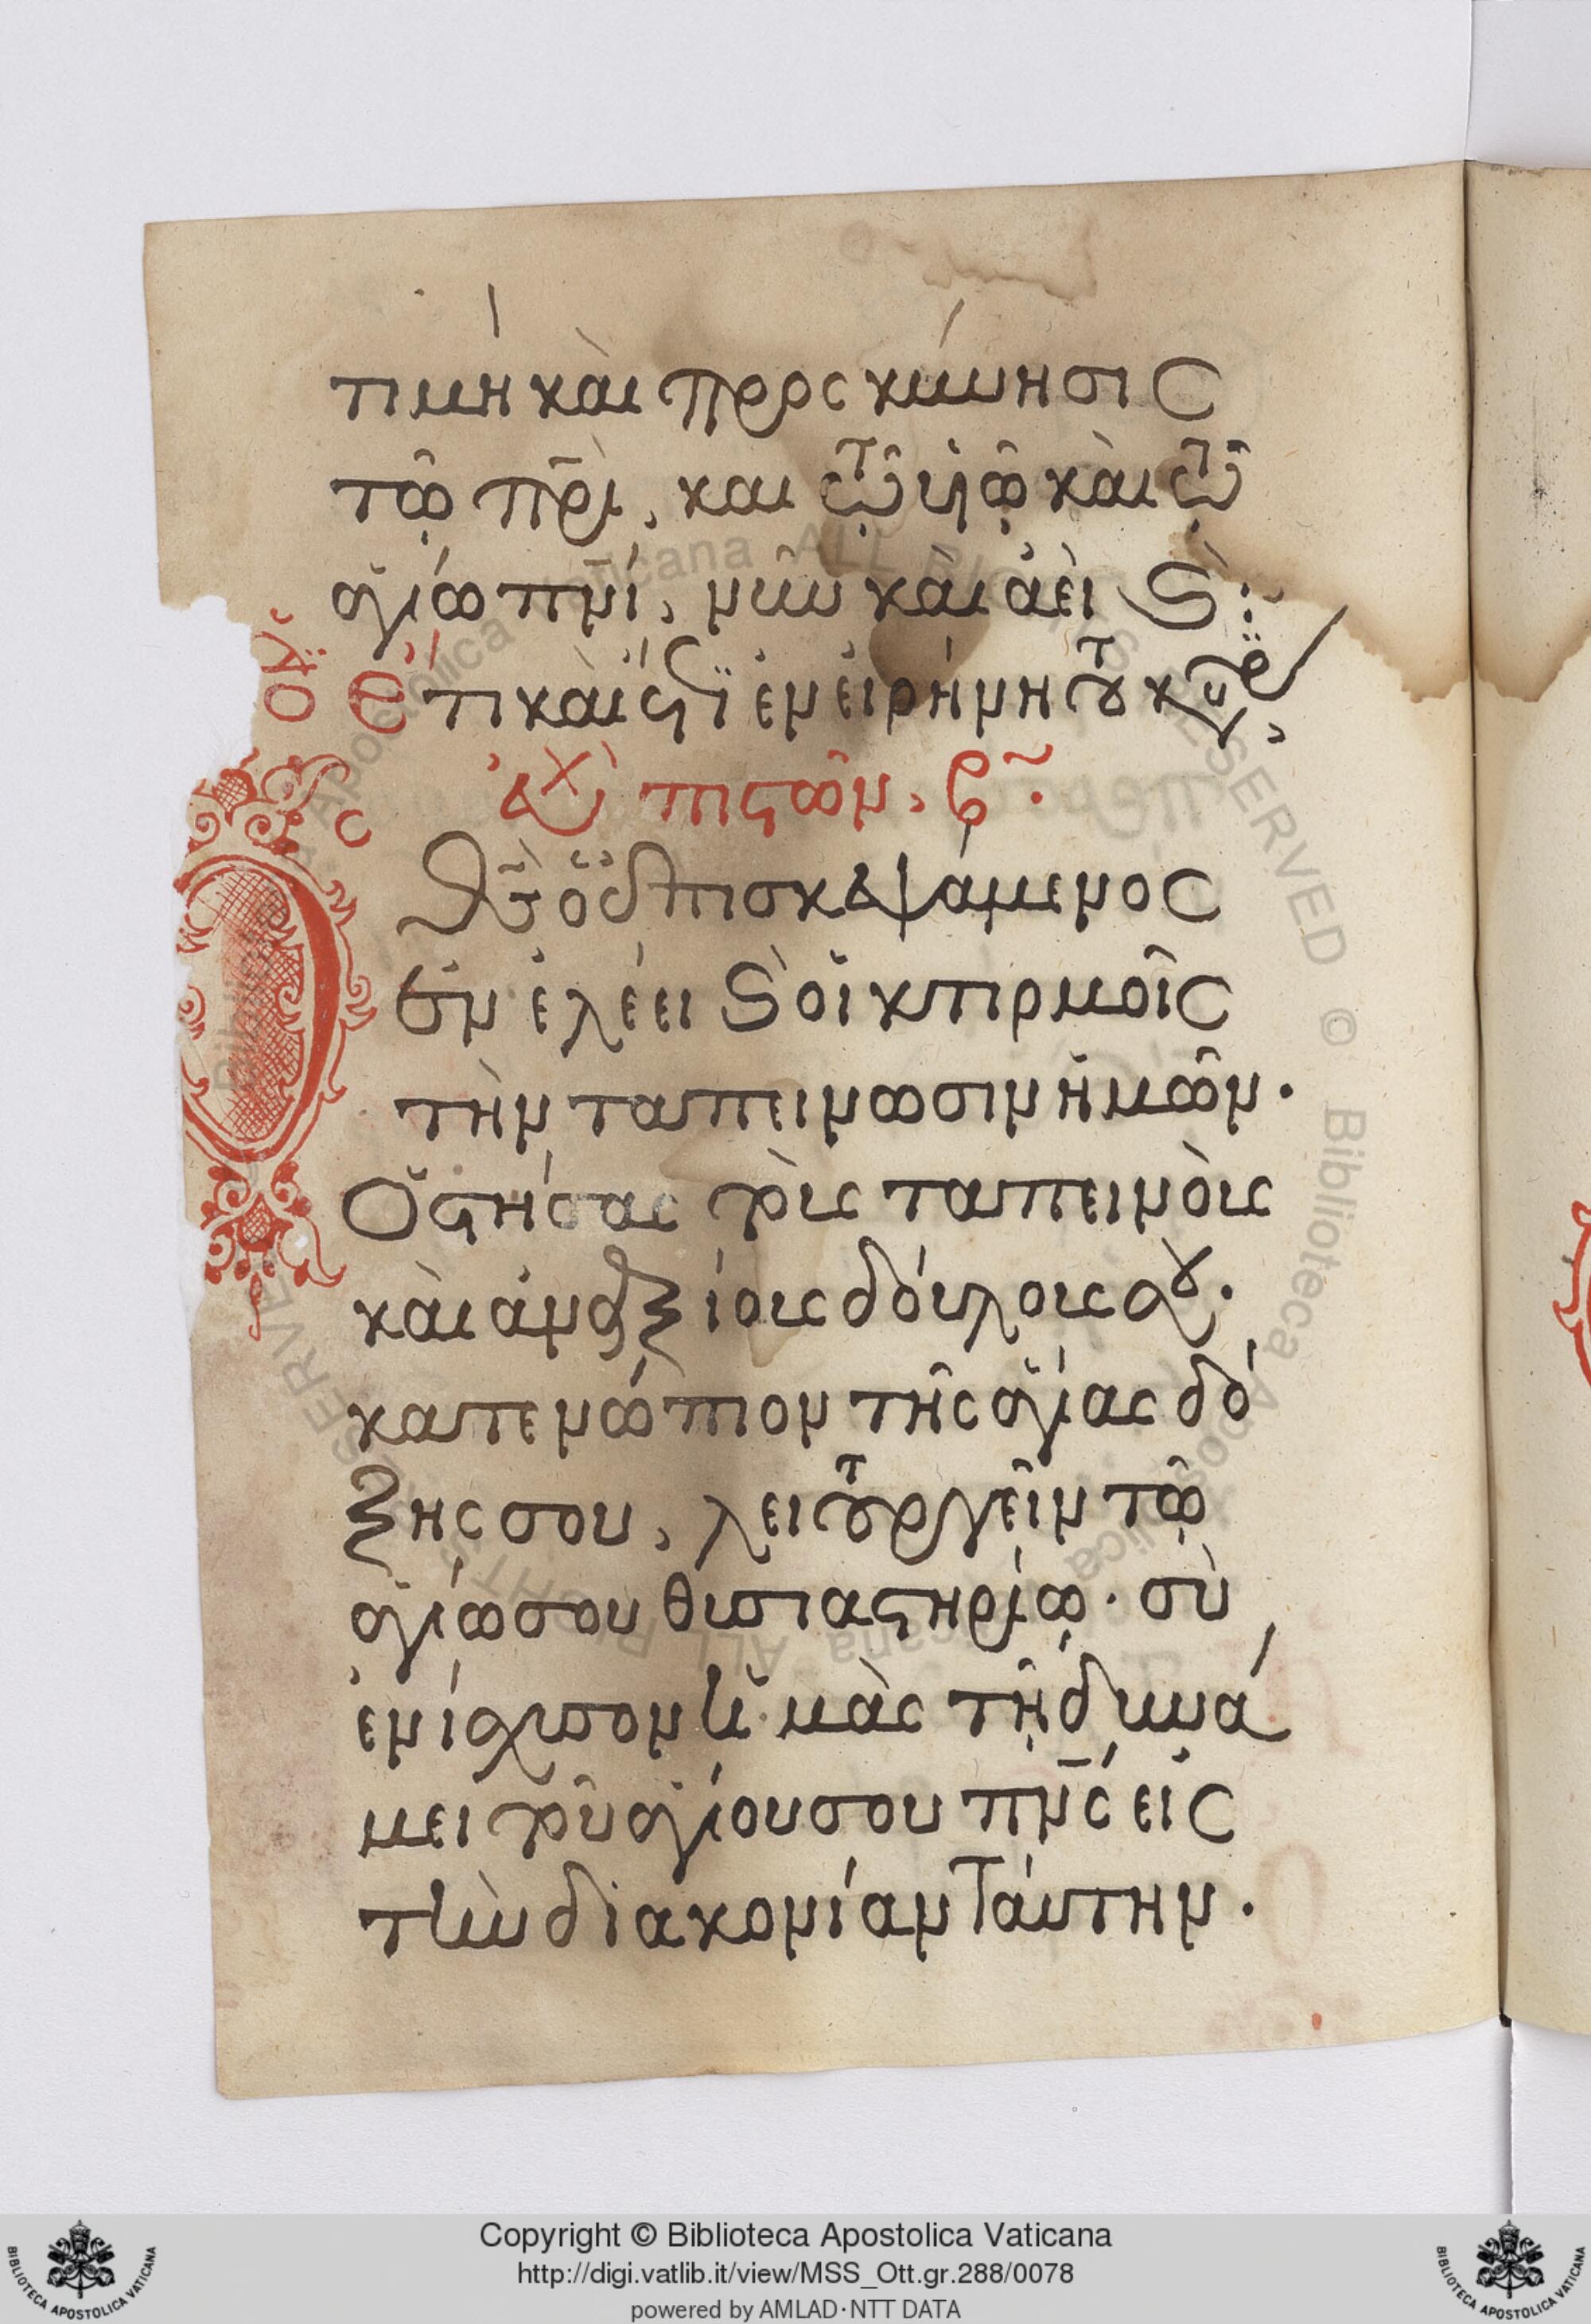 τιμὴ καὶ προσκύνησις
τῷ πρι, και τῷ υἱῷ καὶ τῷ
ἁγίω πνι, νῦν καὶ ἀεὶ κ:
Ἔτι καὶ ἔτι ἐν εἰρήνη τοῦ κυ,
εὐχὴ πιστῶν, β.
Ὁ θς ὁ ἐπισκεψάμενος
ἐν ἐλέει κ οἰκτιρμοῖς
τὴν ταπείνωσιν ἡμῶν.
Ὁ στήσας τοὺς ταπεινοὺς
καὶ ἀναξίους δούλους σου.
κατενώπιον τῆς ἁγίας δό
ξης σου, λειτουργεῖν τῷ
ἁγίω σου θυσιαστηρίῳ. σὺ
ἐνίσχυσον ἡμᾶς τῇ δυνά
μει τοῦ ἁγίου σου πνς εἰς
τὴν διακονίαν ταύτην.
Copyright © Biblioteca Apostolica Vaticana
http://digi.vatlib.it/view/MSS_Ott.gr.288/0078
powered by AMLAD·NTT DATA